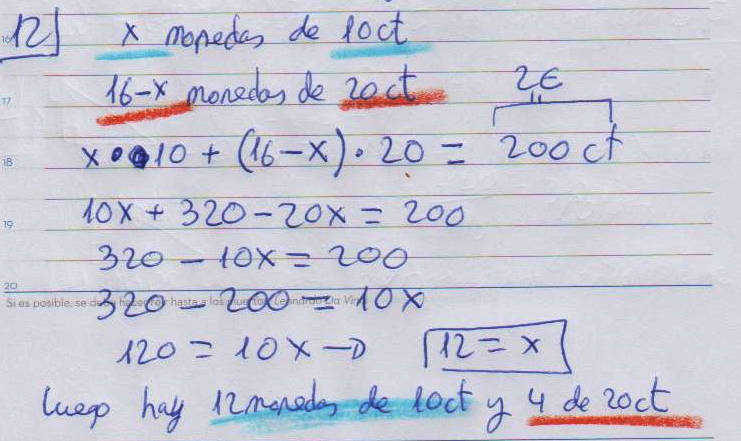 12] x monedas de 10ct
16-x monedas de 20ct
2€
x • 10 + (16-x) • 20 = 200 ct
10x + 320 - 20x = 200
320 - 10x = 200
320 - 200 = 10x
Si es posible, se debe hacer reír hasta a los muertos. Leonardo Da Vinci
120 = 10x → 12 = x
luego hay 12 monedas de 10ct y 4 de 20ct
16
17
18
19
20